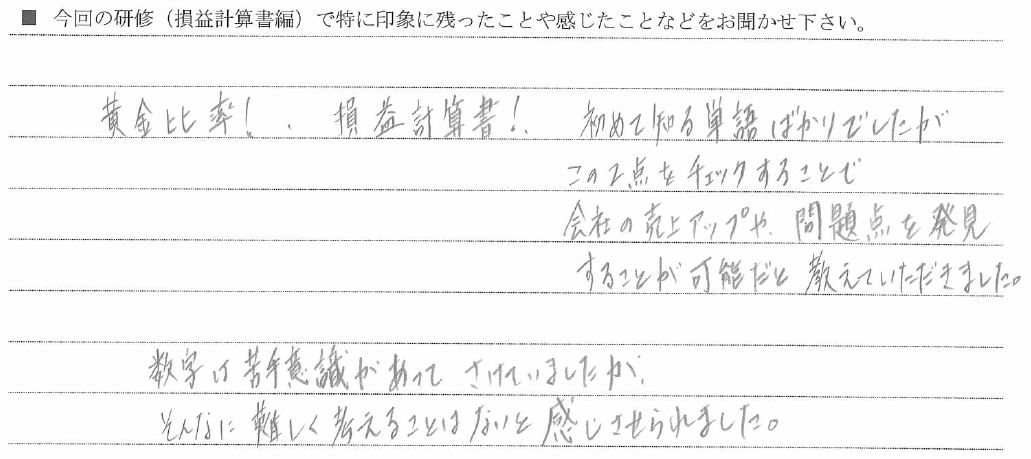 ■ 今回の研修（損益計算書編）で特に印象に残ったことや感じたことなどをお聞かせ下さい。
黄金比率！、損益計算書！、初めて知る単語ばかりでしたが
この2点をチェックすることで
会社の売上アップや、問題点を発見
することが可能だと教えていただきました。
数字は苦手意識があって さけていましたが、
そんなに難しく考えることはないと感じさせられました。